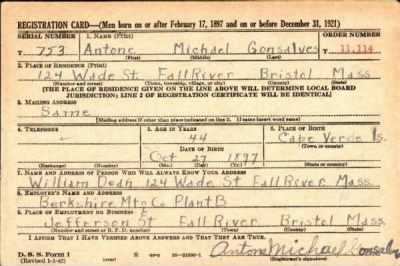 REGISTRATION CARD—(Men born on or after February 17, 1897 and on or before December 31, 1921)
SERIAL NUMBER 1. NAME (Print) ORDER NUMBER
T 753 Antone Michael Gonsalves 11,114
(First) (Middle) (Last)
2. PLACE OF RESIDENCE (Print)
124 Wade St Fall River Bristol Mass
(Number and street) (Town, township, village, or city) (County) (State)
[THE PLACE OF RESIDENCE GIVEN ON THE LINE ABOVE WILL DETERMINE LOCAL BOARD
JURISDICTION; LINE 2 OF REGISTRATION CERTIFICATE WILL BE IDENTICAL]
3. MAILING ADDRESS
Same
[Mailing address if other than place indicated on line 2. If same insert word same]
4. TELEPHONE 5. AGE IN YEARS 6. PLACE OF BIRTH
44 Cape Verde Is.
DATE OF BIRTH (Town or county)
Oct 27 1897
(Exchange) (Number) (Mo.) (Day) (Yr.) (State or country)
7. NAME AND ADDRESS OF PERSON WHO WILL ALWAYS KNOW YOUR ADDRESS
William Dean 124 Wade St Fall River Mass
8. EMPLOYER'S NAME AND ADDRESS
Berkshire Mfg Co Plant B
9. PLACE OF EMPLOYMENT OR BUSINESS
Jefferson St Fall River Bristol Mass
(Number and street or R. F. D. number) (Town) (County) (State)
I AFFIRM THAT I HAVE VERIFIED ABOVE ANSWERS AND THAT THEY ARE TRUE.
D. S. S. Form 1
(Revised 1-1-42) (over) GPO 16-21630-1 Antone Michael Gonsalves
(Registrant's signature)